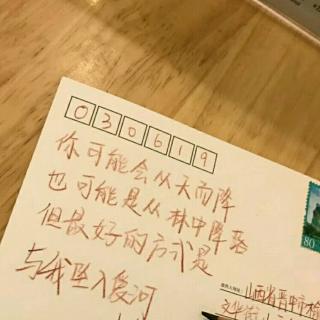 030619
你可能会从天而降
也可能是从林中降落
但最好的方式是
与我坠入爱河
80
山西省晋中市榆
文华街